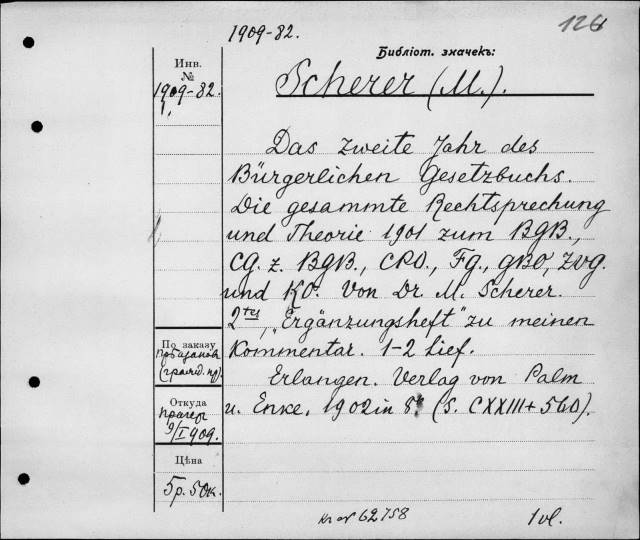 1909-82.
126
Библіот. значекъ:
Инв.
№
1909-82.
1,
Scherer (M.).
Das zweite Jahr des
Bürgerlichen Gesetzbuchs.
Die gesammte Rechtsprechung
und Theorie 1901 zum BGB.,
CG. z. BGB., CPO., Fg., GBO, Zvg.
und KO. Von Dr. M. Scherer.
2tes „Ergänzungsheft“ zu meinen
Kommentar. 1-2 Lief.
Erlangen. Verlag von Palm
u. Enke, 1902 in 8° (S. CXXIII + 560).
По заказу
(гражд. пр).
Откуда
Прагер
9/I 1909.
Цѣна
5р. 50к.
62758
1 vl.